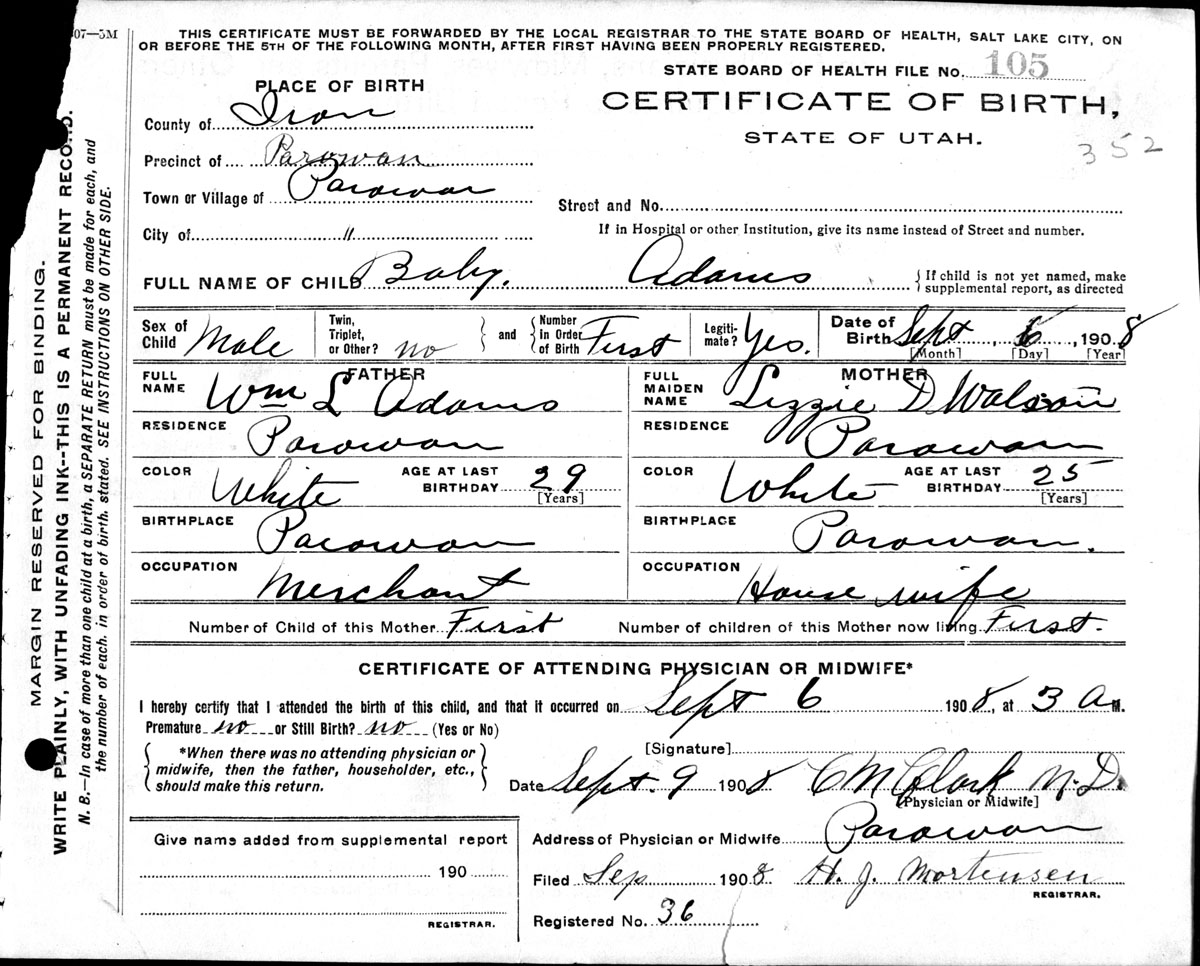 07—5M
THIS CERTIFICATE MUST BE FORWARDED BY THE LOCAL REGISTRAR TO THE STATE BOARD OF HEALTH, SALT LAKE CITY, ON
OR BEFORE THE 5TH OF THE FOLLOWING MONTH, AFTER FIRST HAVING BEEN PROPERLY REGISTERED.
STATE BOARD OF HEALTH FILE No. 105
CERTIFICATE OF BIRTH,
STATE OF UTAH.
352
PLACE OF BIRTH
County of Iron
Precinct of Parowan
Town or Village of Parowan
City of "
Street and No.
If in Hospital or other Institution, give its name instead of Street and number.
FULL NAME OF CHILD Baby. Adams
{If child is not yet named, make
supplemental report, as directed
Sex of Child Male
Twin, Triplet, or Other? no
and Number in Order of Birth First
Legitimate? Yes.
Date of Birth Sept 6, 1908
[Month] [Day] [Year]
FATHER
FULL NAME Wm L Adams
RESIDENCE Parowan
COLOR White AGE AT LAST BIRTHDAY 29
[Years]
BIRTHPLACE Parowan
OCCUPATION Merchant
MOTHER
FULL MAIDEN NAME Lizzie D
RESIDENCE Parowan
COLOR White AGE AT LAST BIRTHDAY 25
[Years]
BIRTHPLACE Parowan.
OCCUPATION House wife
Number of Child of this Mother First Number of children of this Mother now living First.
CERTIFICATE OF ATTENDING PHYSICIAN OR MIDWIFE*
I hereby certify that I attended the birth of this child, and that it occurred on Sept 6 1908, at 3 A M.
Premature no or Still Birth? no (Yes or No)
{*When there was no attending physician or
midwife, then the father, householder, etc.,
should make this return.}
[Signature]
Date Sept. 9 1908 C M Clark M.D.
[Physician or Midwife]
Address of Physician or Midwife Parowan
Filed Sep 1908 H. J. Mortensen
REGISTRAR.
Registered No. 36
Give name added from supplemental report
190
REGISTRAR.
MARGIN RESERVED FOR BINDING.
WRITE PLAINLY, WITH UNFADING INK--THIS IS A PERMANENT RECORD.
N. B.—In case of more than one child at a birth, a SEPARATE RETURN must be made for each, and
the number of each, in order of birth, stated. SEE INSTRUCTIONS ON OTHER SIDE.